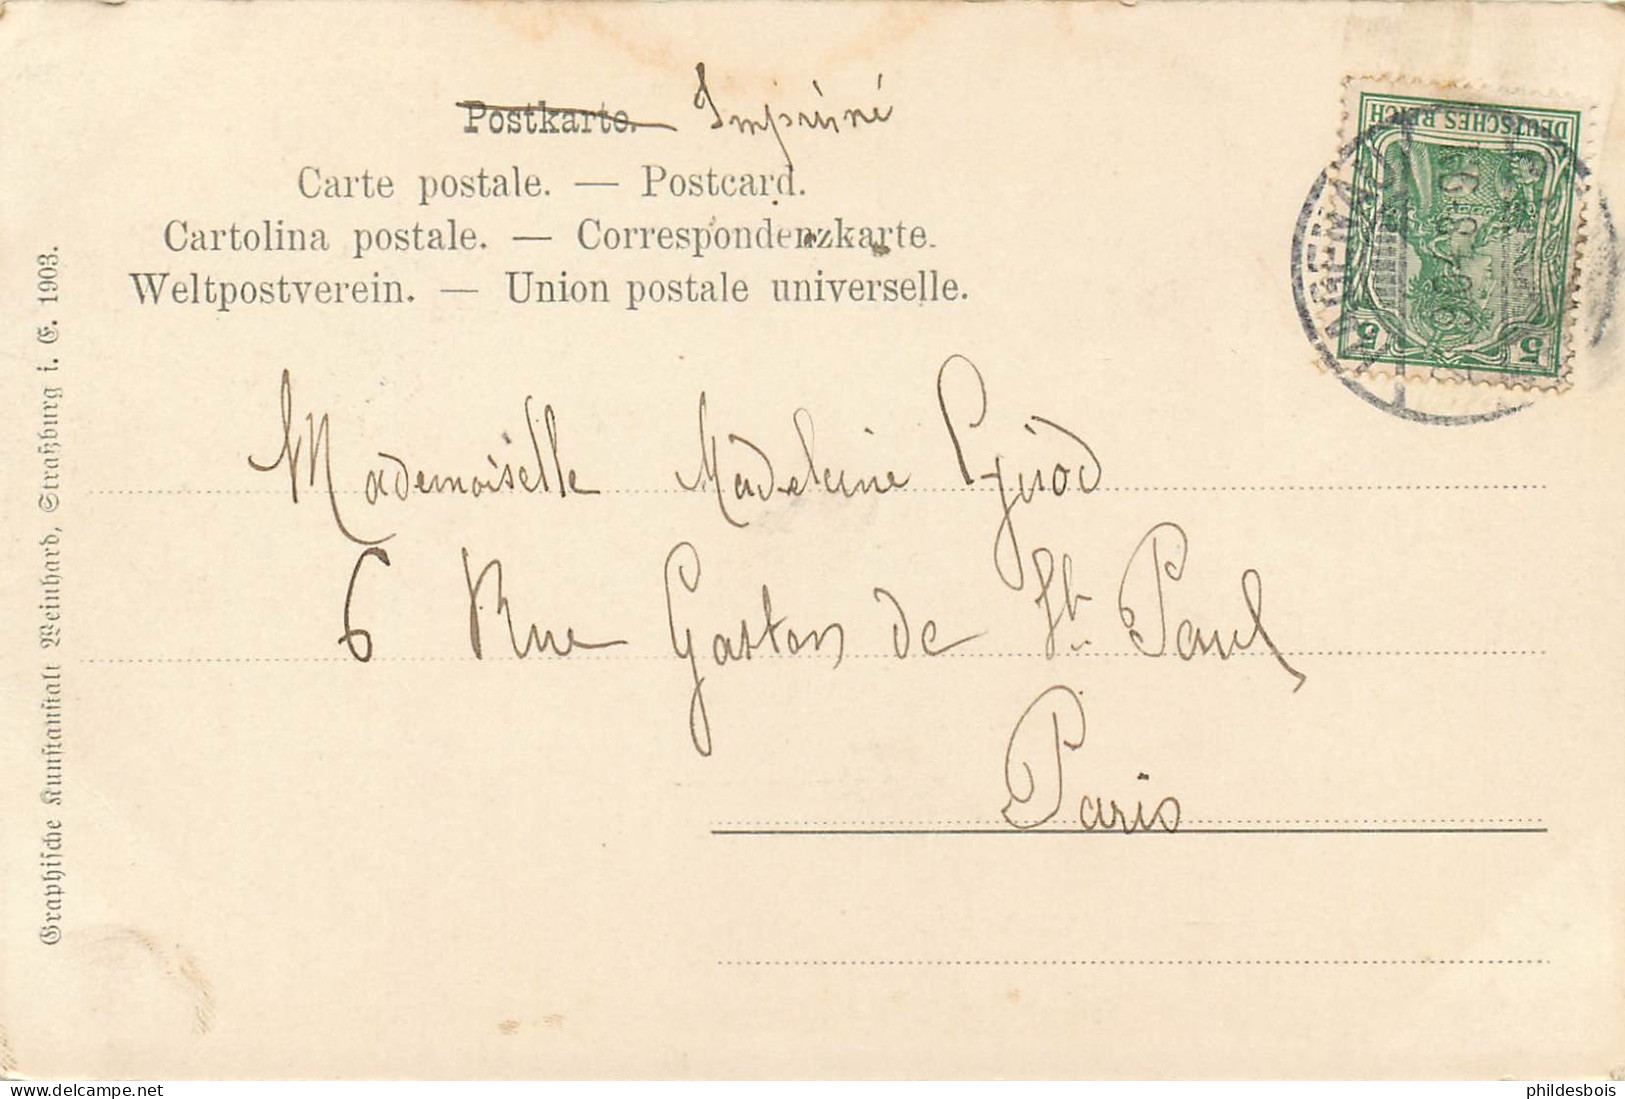 Postkarte. Imprimé
Carte postale. — Postcard.
Cartolina postale. — Correspondenzkarte.
Weltpostverein. — Union postale universelle.
DEUTSCHES REICH
5 5
Mademoiselle Madeleine
6 Rue Gaston de St. Paul
Paris
Graphische Kunstanstalt Weinhard, Straßburg i. E. 1903.
phildesbois